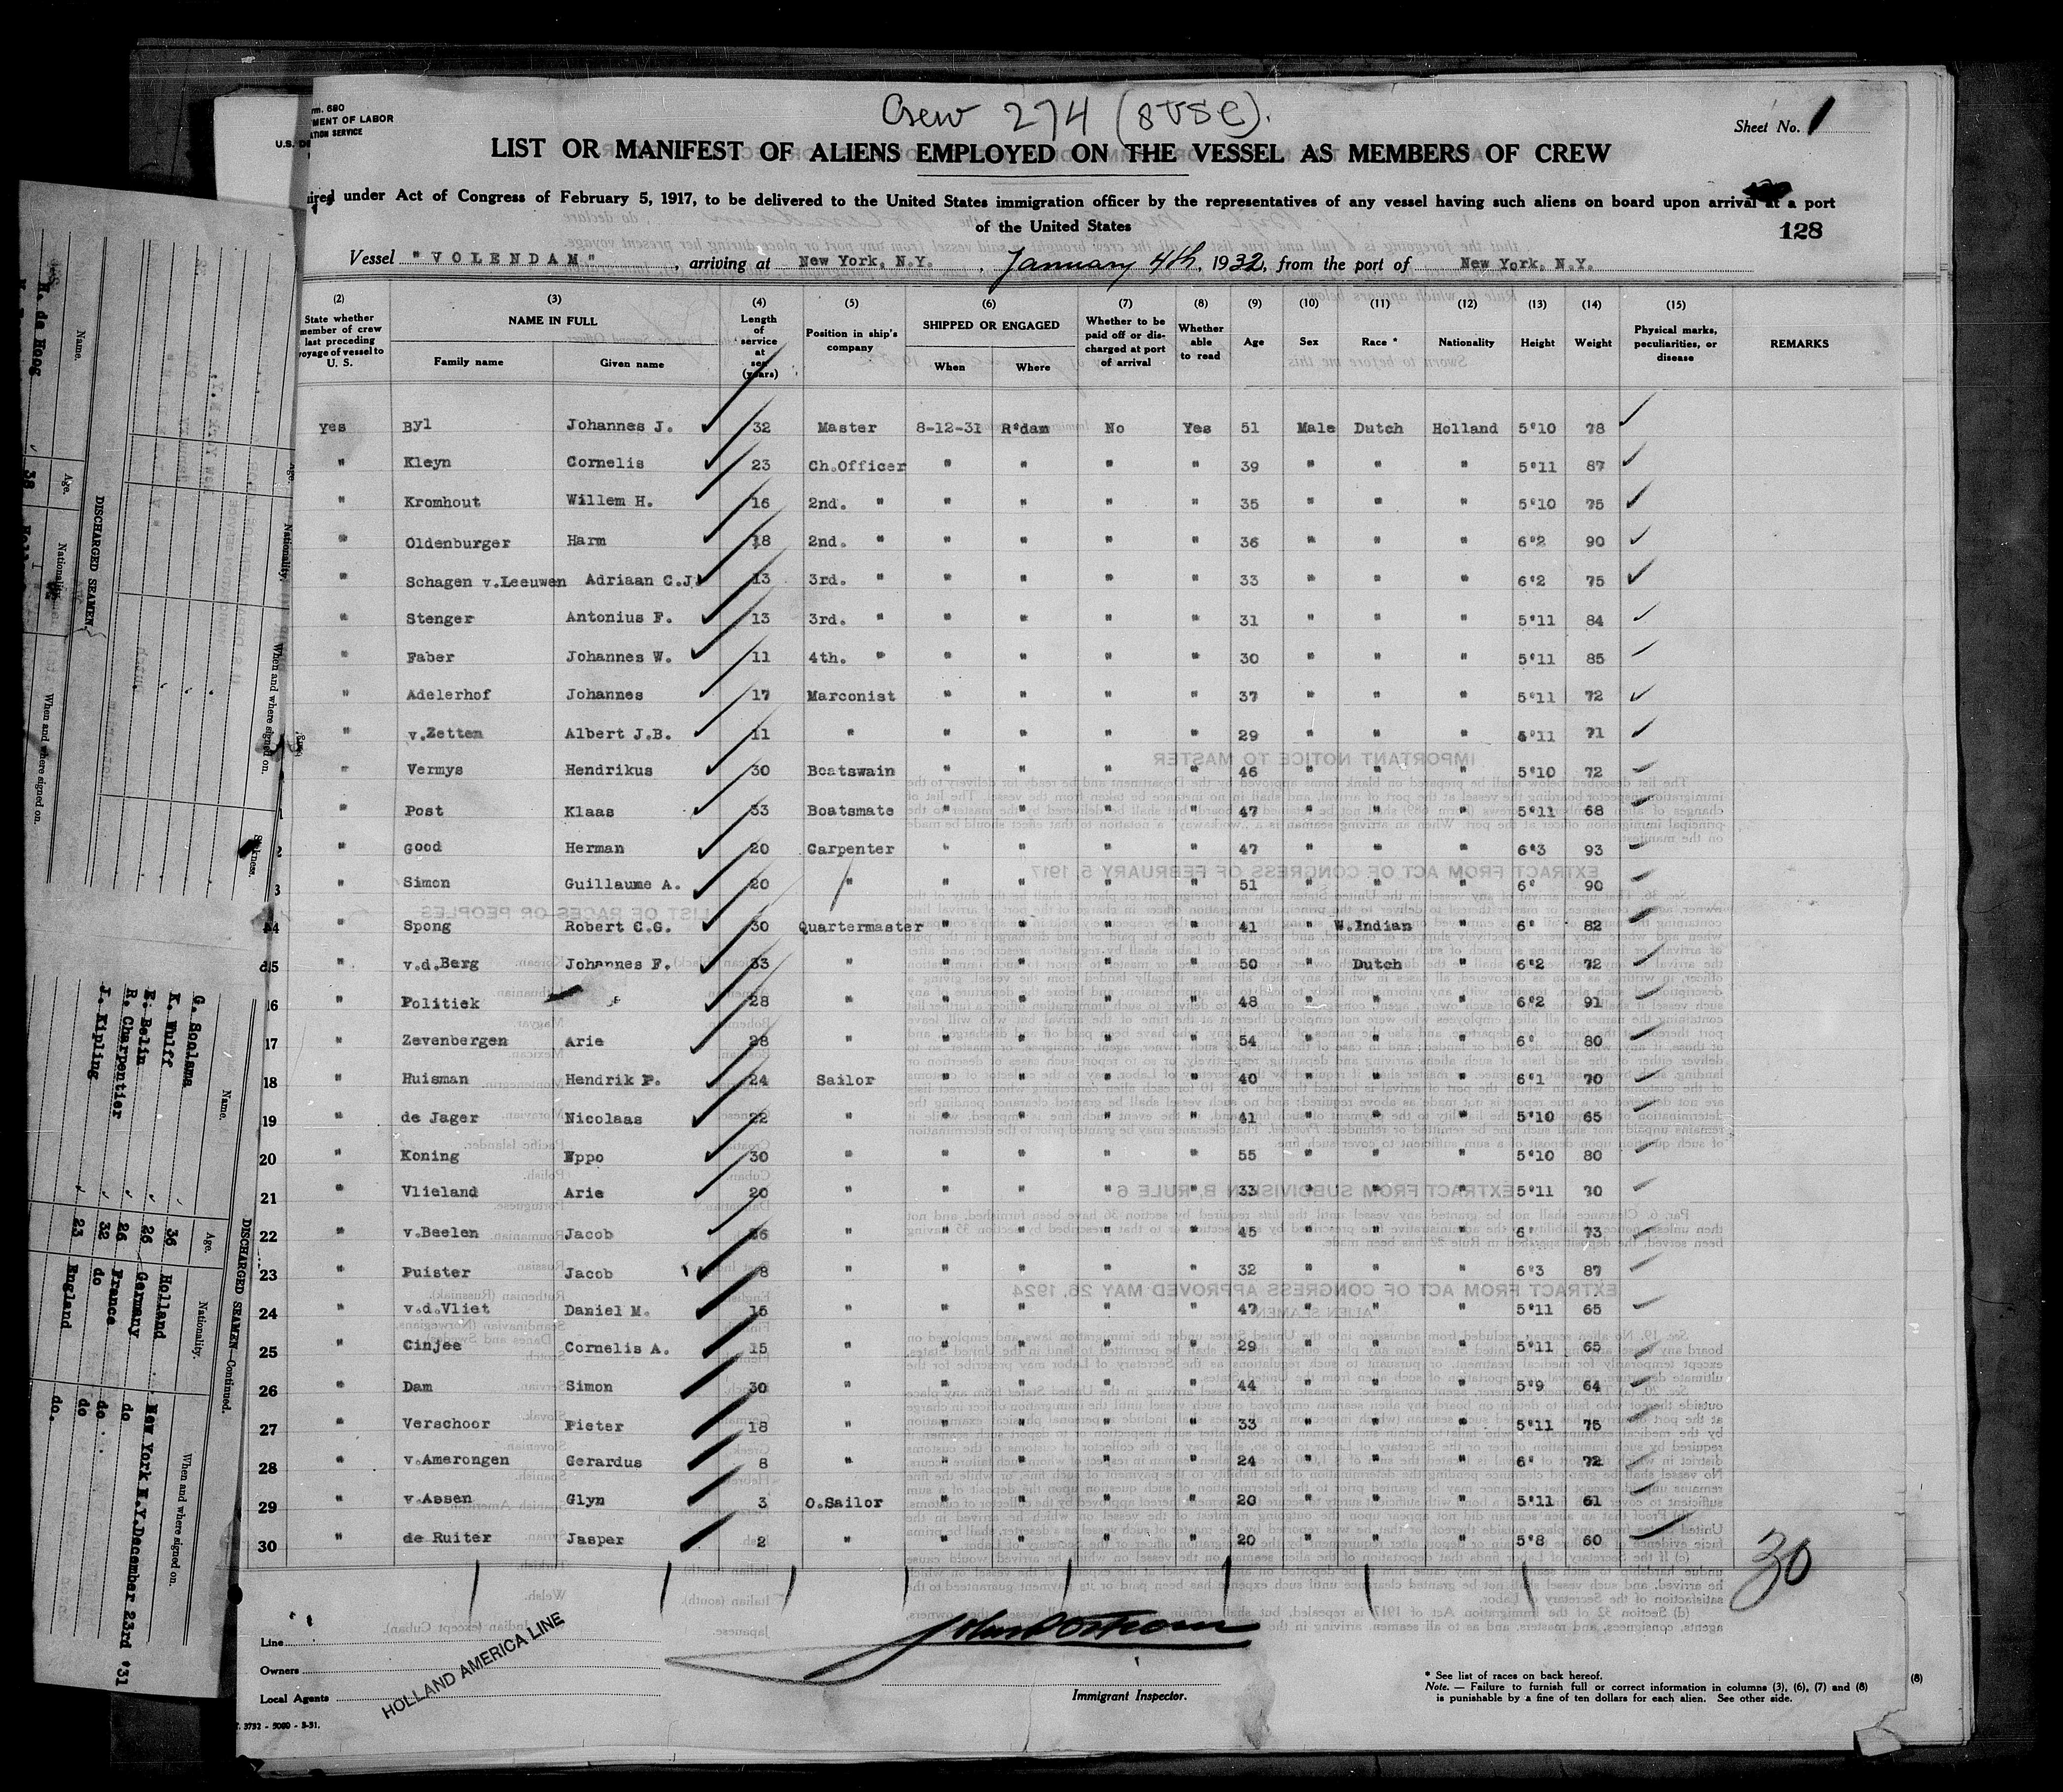 Crew 274 (8 USC).
Sheet No. 1
rm. 680
MENT OF LABOR
ATION SERVICE
U.S. DE
LIST OR MANIFEST OF ALIENS EMPLOYED ON THE VESSEL AS MEMBERS OF CREW
uired under Act of Congress of February 5, 1917, to be delivered to the United States immigration officer by the representatives of any vessel having such aliens on board upon arrival at a port
of the United States
128
Vessel "VOLENDAM", arriving at New York, N.Y., January 4th, 1932, from the port of New York, N.Y.
(2) (3) (4) (5) (6) (7) (8) (9) (10) (11) (12) (13) (14) (15)
State whether member of crew last preceding voyage of vessel to U. S. NAME IN FULL Family name Given name Length of service at sea (years) Position in ship's company SHIPPED OR ENGAGED When Where Whether to be paid off or discharged at port of arrival Whether able to read Age Sex Race * Nationality Height Weight Physical marks, peculiarities, or disease REMARKS
Yes Byl Johannes J. 32 Master 8-12-31 R'dam No Yes 51 Male Dutch Holland 5'10 78
" Kleyn Cornelis 23 Ch.Officer " " " " 39 " " " 5'11 87
" Kromhout Willem H. 16 2nd. " " " " " 35 " " " 5'10 75
" Oldenburger Harm 18 2nd. " " " " " 36 " " " 6'2 90
" Schagen v.Leeuwen Adriaan C.J. 13 3rd. " " " " " 33 " " " 6'2 75
" Stenger Antonius F. 13 3rd. " " " " " 31 " " " 5'11 84
" Faber Johannes W. 11 4th. " " " " " 30 " " " 5'11 85
" Adelerhof Johannes 17 Marconist " " " " 37 " " " 5'11 72
" v.Zetten Albert J.B. 11 " " " " " 29 " " " 5'11 71
" Vermys Hendrikus 30 Boatswain " " " " 46 " " " 5'10 72
" Post Klaas 33 Boatsmate " " " " 47 " " " 5'11 68
" Good Herman 20 Carpenter " " " " 47 " " " 6'3 93
" Simon Guillaume A. 20 " " " " " 51 " " " 6' 90
" Spong Robert C.G. 30 Quartermaster " " " " 41 " W.Indian " 6' 82
15 " v.d.Berg Johannes F. 33 " " " " " 50 " Dutch " 6'2 72
16 " Politiek 28 " " " " " 48 " " " 6'2 91
17 " Zevenbergen Arie 28 " " " " " 54 " " " 6' 80
18 " Huisman Hendrik P. 24 Sailor " " " " 40 " " " 6'1 70
19 " de Jager Nicolaas 22 " " " " " 41 " " " 5'10 65
20 " Koning Eppo 30 " " " " " 55 " " " 5'10 80
21 " Vlieland Arie 20 " " " " " 33 " " " 5'11 70
22 " v.Beelen Jacob 26 " " " " " 45 " " " 6' 73
23 " Puister Jacob 8 " " " " " 32 " " " 6'3 87
24 " v.d.Vliet Daniel M. 15 " " " " " 47 " " " 5'11 65
25 " Cinjee Cornelis A. 15 " " " " " 29 " " " 5'11 65
26 " Dam Simon 30 " " " " " 44 " " " 5'9 64
27 " Verschoor Pieter 18 " " " " " 33 " " " 5'11 75
28 " v.Amerongen Gerardus 8 " " " " " 24 " " " 6' 72
29 " v.Assen Glyn 3 O.Sailor " " " " 20 " " " 5'11 61
30 " de Ruiter Jasper 2 " " " " " 20 " " " 5'8 60
30
Line
Owners
Local Agents
HOLLAND AMERICA LINE
Immigrant Inspector.
* See list of races on back hereof.
Note. — Failure to furnish full or correct information in columns (3), (6), (7) and (8)
is punishable by a fine of ten dollars for each alien. See other side.
(8)
3732 - 5000 - 3-31.
DISCHARGED SEAMEN.
Name. Age. Nationality. When and where signed on.
H. de Hoog 38
DISCHARGED SEAMEN—Continued.
Name. Age. Nationality. When and where signed on.
G. Soolsma 36 Holland New York N.Y. December 23rd '31
K. Wulff 26 Germany do
E. Belin 26 France do
R. Charpentier 32 do do
J. Kipling 23 England do.